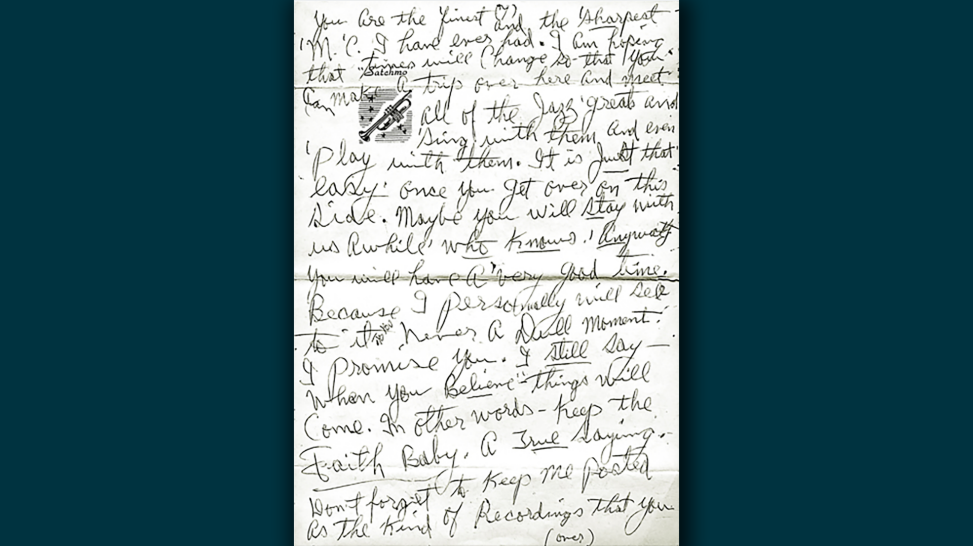 You are the finest (?) and the 'sharpest
'M.'C. I have ever had. I am hoping
that "times will change so that 'you
Satchmo
Can make A trip over here and meet
all of the Jazz 'greats and
'Sing with them, and even
'Play with them. It is Just that
easy' once you get over on this
Side. Maybe you will Stay with
us Awhile' who Knows.' Anyway
you will have A 'very good time.
Because I personally will see
to it. Never A Dull Moment.
I Promise You. I still say—
When you Believe" things will
Come. In other words – Keep the
Faith Baby. A True saying.
Don't forget to Keep Me Posted
As the Kind of Recordings that you
(over)